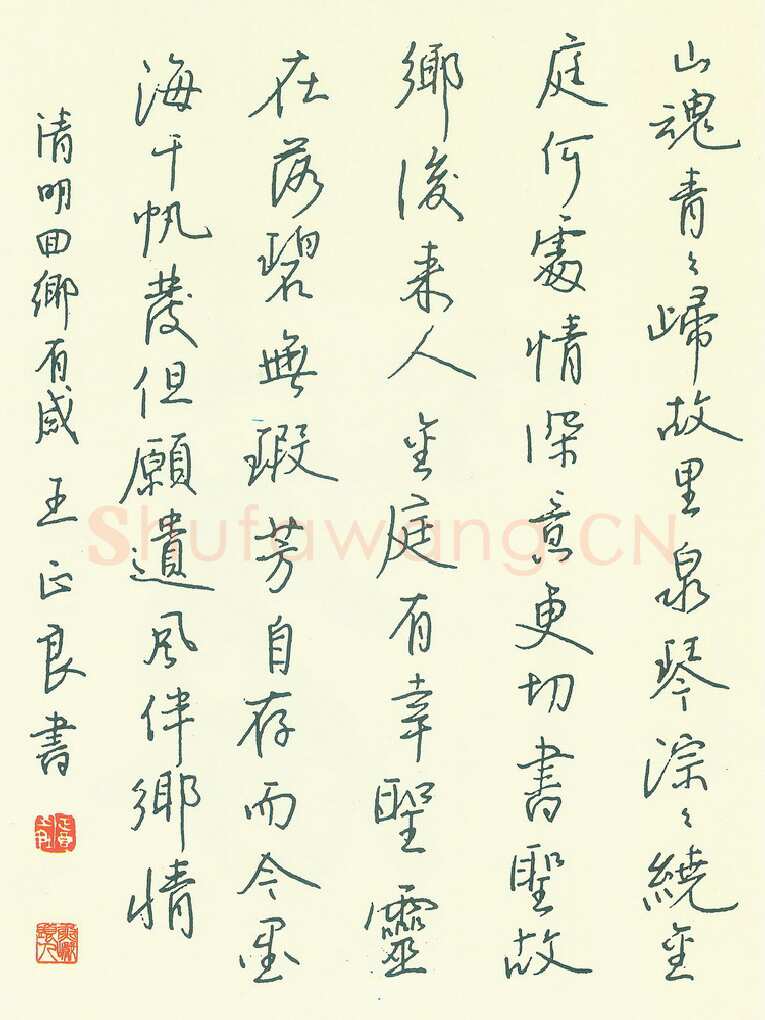 山魂青々歸故里泉琴淙々繞金
庭何處情深意更切書聖故
鄉後來人金庭有幸聖靈
在落碧無瑕芳自存而今墨
海千帆發但願遺風伴鄉情
清明回鄉有感王正良書
Shufawang.CN